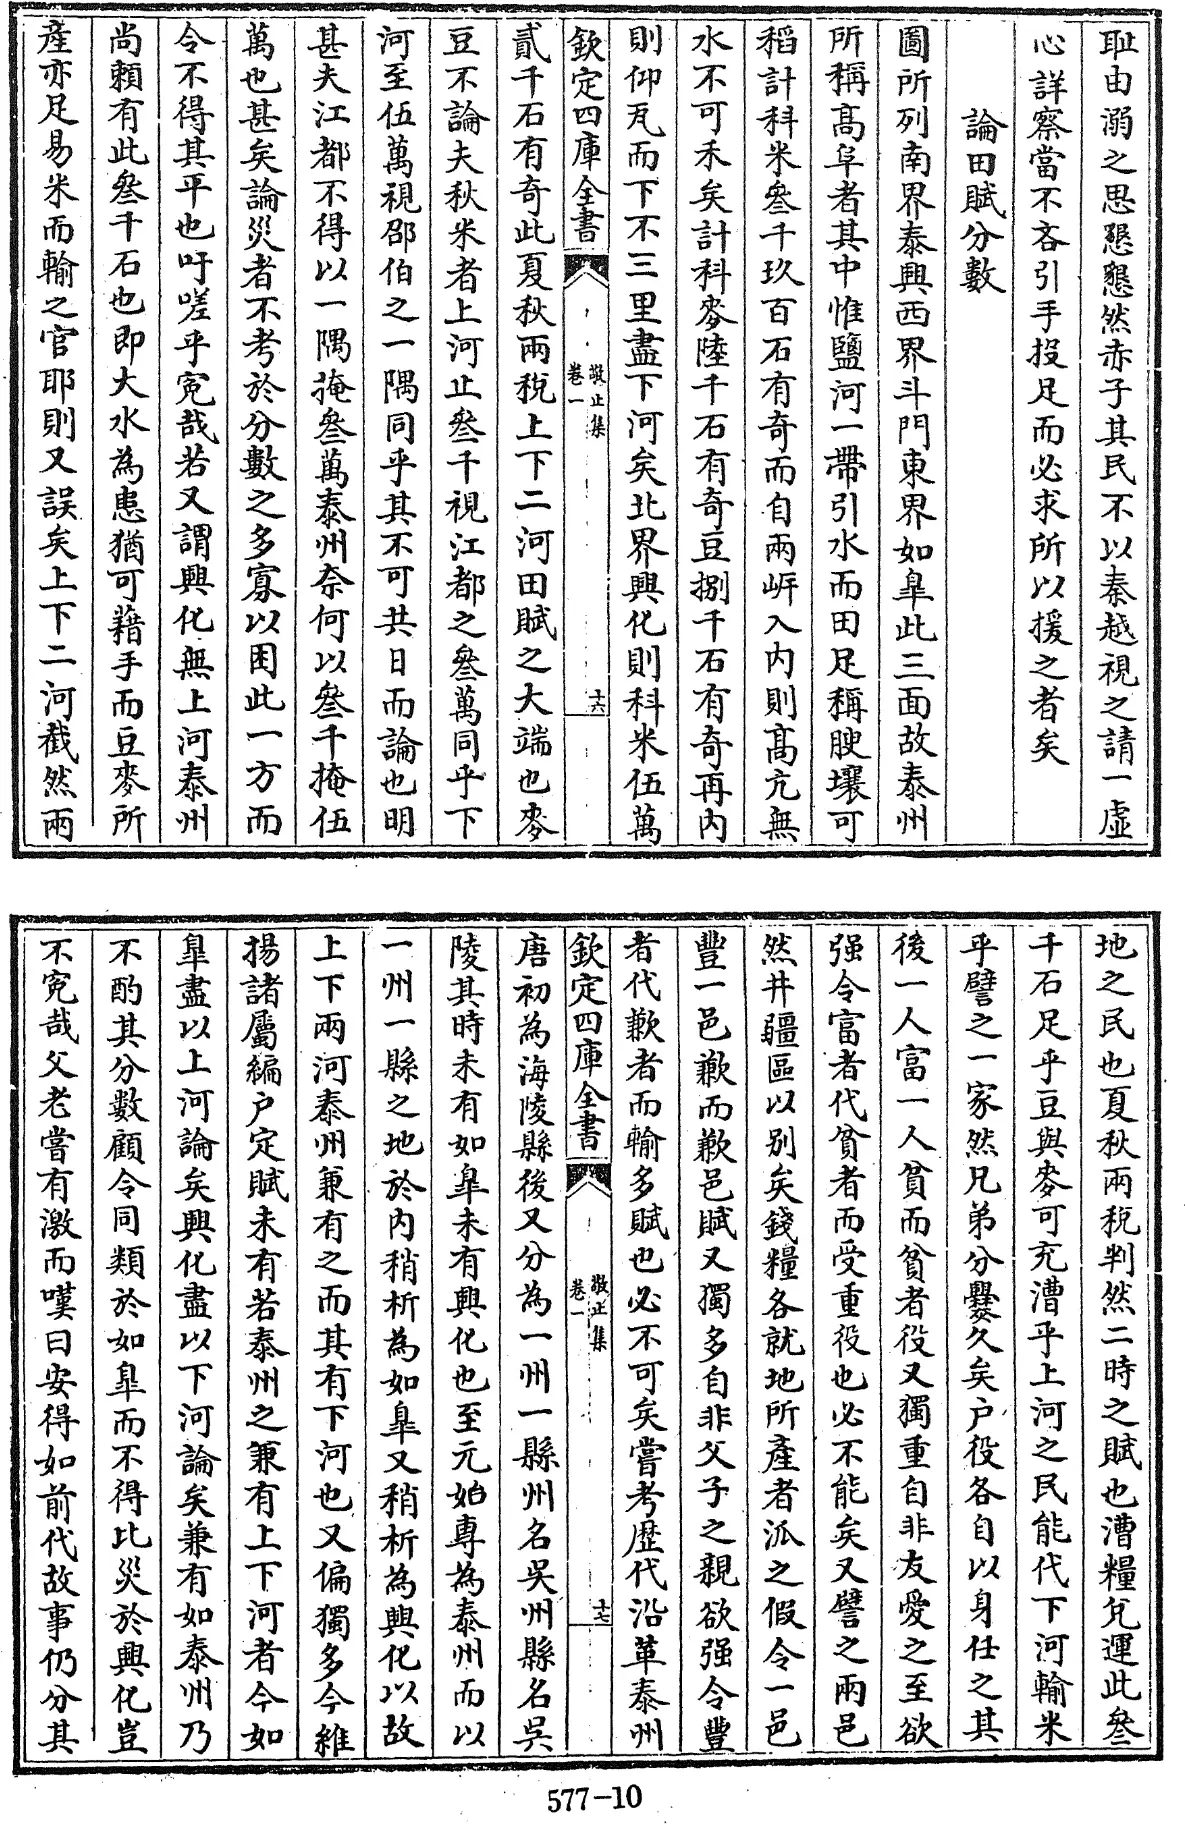 耻由溺之思懇懇然赤子其民不以秦越視之請一虚
心詳察當不吝引手投足而必求所以援之者矣
論田賦分數
圖所列南界泰興西界斗門東界如臯此三面故泰州
所稱髙阜者其中惟鹽河一帶引水而田足稱腴壤可
稻計科米叄千玖百石有奇而自兩岍入内則髙亢無
水不可禾矣計科麥陸千石有奇豆捌千石有奇再内
則仰瓦而下不三里盡下河矣北界興化則科米伍萬
欽定四庫全書
敬止集
卷一
十六
貳千石有奇此夏秋兩稅上下二河田賦之大端也麥
豆不論夫秋米者上河止叄千視江都之叄萬同乎下
河至伍萬視邵伯之一隅同乎其不可共日而論也明
甚夫江都不得以一隅掩叄萬泰州奈何以叄千掩伍
萬也甚矣論災者不考於分數之多寡以困此一方而
令不得其平也吁嗟乎寃哉若又謂興化無上河泰州
尚賴有此叄千石也即大水為患猶可藉手而豆麥所
產亦足易米而輸之官耶則又誤矣上下二河截然兩
地之民也夏秋兩稅判然二時之賦也漕糧兌運此叄
千石足乎豆與麥可充漕乎上河之民能代下河輸米
乎譬之一家然兄弟分爨久矣户役各自以身任之其
後一人富一人貧而貧者役又獨重自非友愛之至欲
强令富者代貧者而受重役也必不能矣又譬之兩邑
然井疆區以别矣錢糧各就地所產者派之假令一邑
豐一邑歉而歉邑賦又獨多自非父子之親欲强令豐
者代歉者而輸多賦也必不可矣嘗考歴代沿革泰州
欽定四庫全書
敬止集
卷一
十七
唐初為海陵縣後又分為一州一縣州名吳州縣名吳
陵其時未有如臯未有興化也至元始專為泰州而以
一州一縣之地於内稍析為如臯又稍析為興化以故
上下兩河泰州兼有之而其有下河也又偏獨多今維
揚諸屬編户定賦未有若泰州之兼有上下河者今如
臯盡以上河論矣興化盡以下河論矣兼有如泰州乃
不酌其分數顧令同類於如臯而不得比災於興化豈
不寃哉父老嘗有激而嘆曰安得如前代故事仍分其
577-10